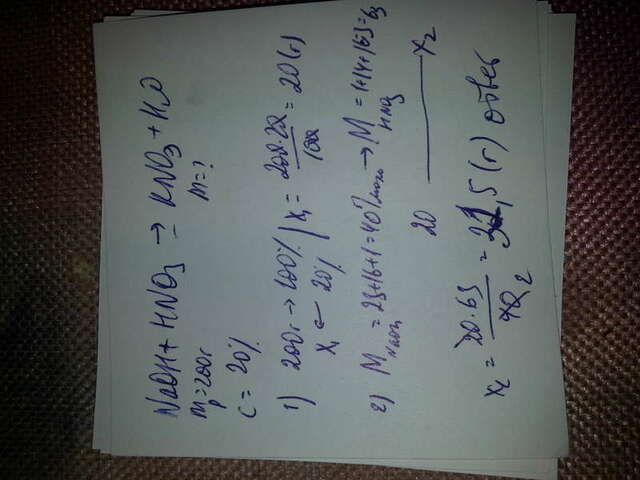 NaOH + HNO3 → KNO3 + H2O
mр = 200г m = ?
c = 20%
1) 200г → 100% | x1 = 200·20/100 = 20 (г)
x1 ← 20%
2) M NaOH = 23+16+1 = 40 → M HNO3 = 1+14+16·3 = 63
20 — x2
x2 = 20·63/40 = 31,5 (г) ответ